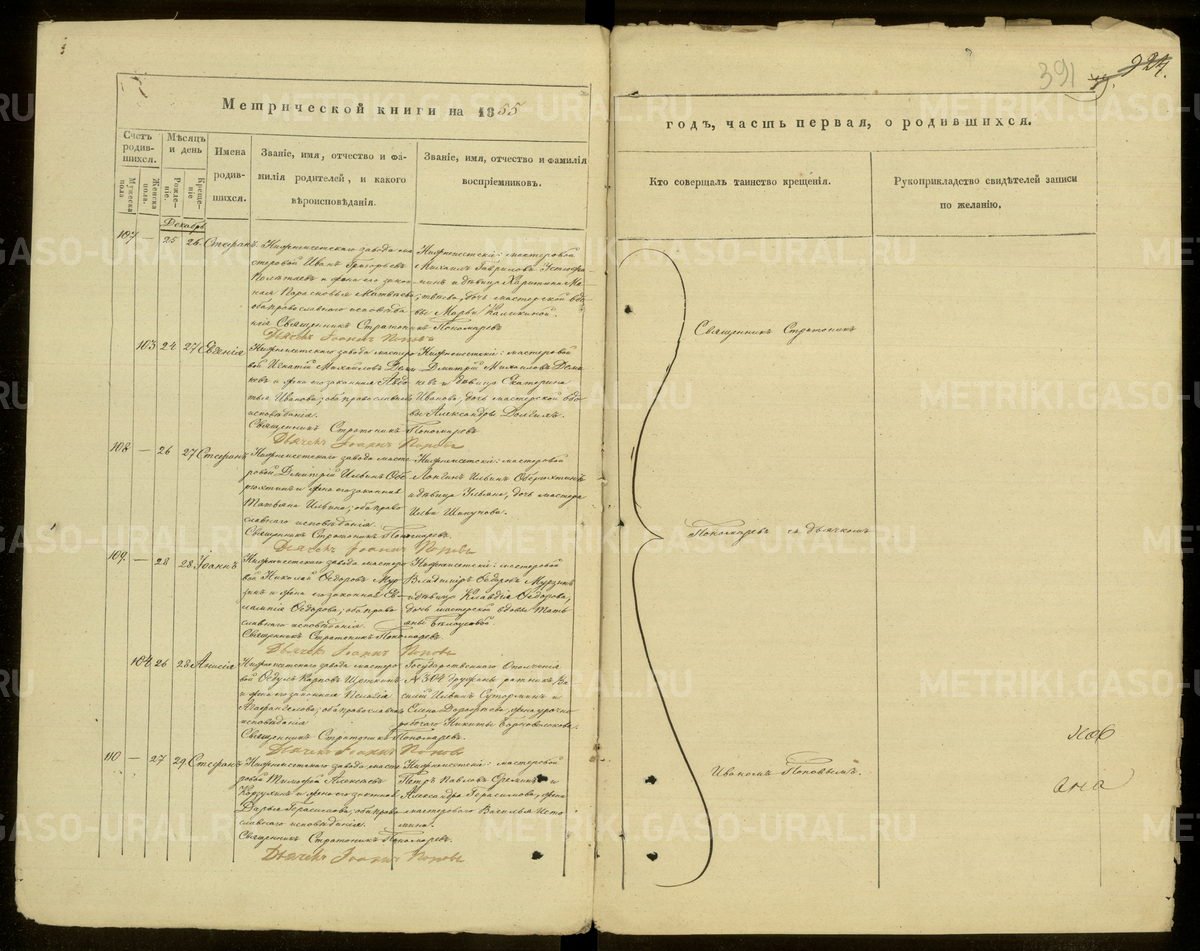 391
924.
Метрической книги на 1855
годъ, часть первая, о родившихся.
Счетъ родив-шихся.
Мужеска пола.
Женска пола.
Мѣсяцъ и день
Рожде-ніе.
Креще-ніе
Имена родив-шихся.
Званіе, имя, отчество и фа-
милія родителей, и какого
вѣроисповѣданія.
Званіе, имя, отчество и фамилія
воспріемниковъ.
Кто совершалъ таинство крещенія.
Рукоприкладство свидѣтелей записи
по желанію,
Декабрь
107 25 26 Стефанъ
Нижнеисетскаго завода мас-
теровой Иванъ Григорьевъ
Полѣтаевъ и жена его закон-
ная Парасковья Матвѣева
оба православнаго исповѣда-
нія Священникъ Стратоникъ Пономаревъ
Нижнеисетскій: мастеровой
Михаилъ Гавриловъ
и дѣвица Харитина Ма-
твѣева, дочь мастерской вдо-
вы Марѳы Каликиной.
Дьячекъ Іоаннъ Поповъ
103 24 27 Евгенія
Нижнеисетскаго завода мастеро-
вой Игнатій Михайловъ
и жена его законная Авдо-
тья Иванова; оба православнаго
исповѣданія.
Священникъ Стратоникъ Пономаревъ
Нижнеисетскій: мастеровой
Дмитрій Михайловъ
и дѣвица Екатерина
Иванова, дочь мастерской вдо-
вы Александры
Дьячекъ Іоаннъ Поповъ
108 — 26 27 Стефанъ
Нижнеисетскаго завода масте-
ровой Дмитрій Ильинъ Обе-
рюхтинъ и жена его законная
Татьяна Ильина; оба право-
славнаго исповѣданія.
Священникъ Стратоникъ Пономаревъ.
Нижнеисетскій: мастеровой
Логинъ Ильинъ Оберюхтинъ
и дѣвица Ульяна, дочь мастера
Ильи Шипунова.
Дьячекъ Іоаннъ Поповъ
109. — 28 28 Іоаннъ
Нижнеисетскаго завода мастеро-
вой Николай Ѳедоровъ Мур-
зинъ и жена его законная Ев-
лампія Ѳедорова; оба право-
славнаго исповѣданія.
Священникъ Стратоникъ Пономаревъ.
Нижнеисетскій: мастеровой
Владиміръ Ѳедоровъ Мурзинъ
и дѣвица Клавдія Ѳедорова,
дочь мастерской вдовы Тать-
яны Бѣлоусовой.
Дьячекъ Іоаннъ Поповъ
104 26 28 Анисія
Нижнеисетскаго завода мастеро-
вой Ѳедулъ Карповъ Щеткинъ
и жена его законная Пелагія
Агафангелова; оба православнаго
исповѣданія
Священникъ Стратоникъ Пономаревъ.
Государственнаго Ополченія
№ 304 дружины ратникъ Ва-
силій Ильинъ Сутормин и
Елена Дорофѣева, жена урочно-
рабочаго Никиты
Дьячекъ Іоаннъ Поповъ
110 — 27 29 Стефанъ
Нижнеисетскаго завода масте-
ровой Тимофей Алексѣевъ
Корзухинъ и жена его законная
Дарья Герасимова; оба право-
славнаго исповѣданія.
Священникъ Стратоникъ Пономаревъ.
Нижнеисетскій: мастеровой
Петръ Павловъ Еремин и
Александра Герасимова, жена
мастероваго Василья Исто-
мина.
Дьячекъ Іоаннъ Поповъ
Священникъ Стратоникъ
Пономаревъ съ дьячкомъ
Иваномъ Поповымъ.
METRIKI.GASO-URAL.RU